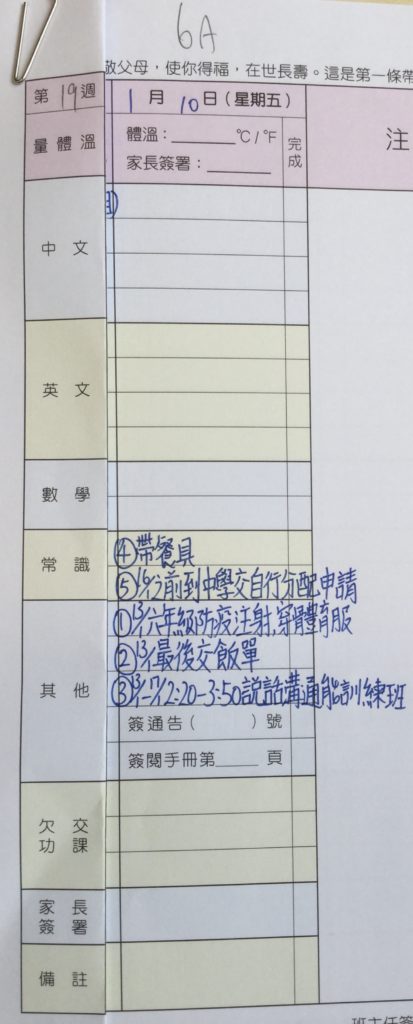 6A
敬父母，使你得福，在世長壽。這是第一條帶
第19週 1月10日（星期五）
量體溫 體溫：______℃/℉ 完成 注
家長簽署：______
中文
英文
數學
常識
④帶餐具
⑤16/1前到中學交自行分配申請
其他
①13/1六年級防疫注射,穿體育服
②13/1最後交飯單
③13/1-17/1 2:20-3:50說話溝通能訓練班
簽通告（ ）號
簽閱手冊第____頁
欠交功課
家長簽署
備註